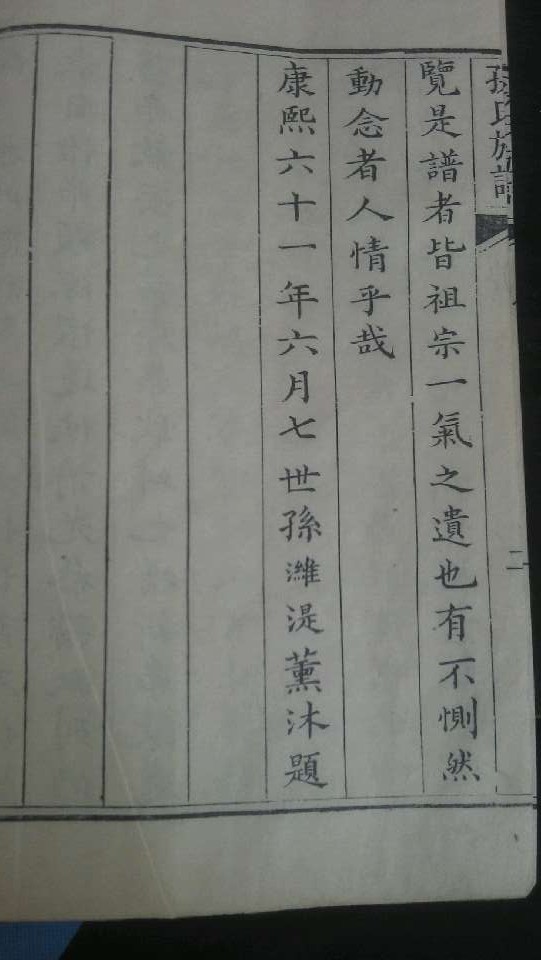 孫氏族譜
二
覽是譜者皆祖宗一氣之遺也有不惻然
動念者人情乎哉
康熙六十一年六月七世孫濰湜薰沐題